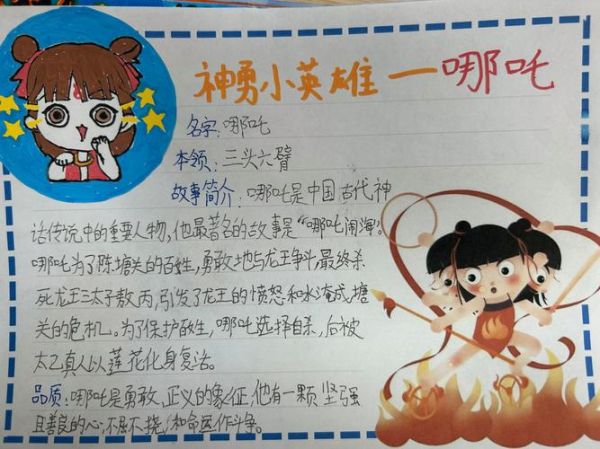 神勇小英雄一哪吒
名字:哪吒
本领:三头六臂
故事简介:哪吒是中国古代神
话传说中的重要人物,他最著名的故事是“哪吒闹海”。
哪吒为了陈塘关的百姓,勇敢地与龙王争斗,最终杀
死龙王三太子敖丙,引发了龙王的愤怒和水淹陈塘
关的危机。为了保护百姓,哪吒选择自杀,后被
太乙真人以莲花化身复活。
品质:哪吒是勇敢、正义的象征,他有一颗坚强
且善良的心,不屈不挠,和命运作斗争。